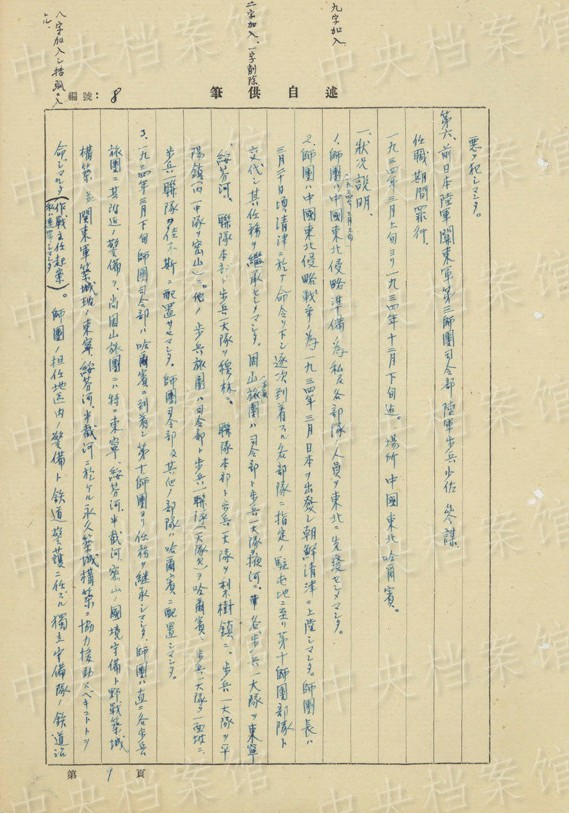 九字加入
二字加入、一字削除
八字加入
筆供自述
編號：8
悪ヲ犯シマシタ。
第六、前日本陸軍関東軍第三師團司令部、陸軍歩兵少佐 参謀
任職期間罪行。
一九三四年三月上旬ヨリ一九三四年十二月下旬迄。場所 中國東北哈爾賓。
一、狀況説明。
1、師團ハ中國東北侵略準備ノ為私及各部隊人員ヲ東北ニ先發セシメマシタ。
2、師團ハ中國東北侵略戰爭ノ為一九三四年三月日本ヲ出發シ朝鮮清津ニ上陸シマシタ。師團長ハ
三月下旬頃清津ニ於テ命令ヲ下シ逐次到着スル各部隊ニ指定ノ駐屯地ニ至リ第十師團部隊ト
交代シ其任務ヲ継承セシメマシタ。岡山旅團ハ司令部ト歩兵一大隊ヲ掖河、各歩兵一大隊ヲ東寧
綏芬河、聯隊本部ト歩兵一大隊ヲ穆棱ニ、聯隊本部ト歩兵一大隊ヲ梨樹鎮ニ、歩兵一大隊ヲ平
陽鎮（一中隊ヲ密山）ニ、他ノ歩兵旅團ハ司令部ト歩兵一聯隊（大隊欠）ヲ哈爾賓、歩兵一大隊ヲ一面坡ニ、
歩兵一聯隊ヲ佳木斯ニ配置サセマシタ。師團司令部及其他ノ部隊ハ哈爾賓ニ配置シマシタ。
3、一九三四年三月下旬師團司令部ハ哈爾賓ニ到着シ第十師團ヨリ任務ヲ継承シマシタ。師團ハ直ニ各歩兵
旅團ニ其附近ノ警備ヲ、尚岡山旅團ニハ特ニ東寧、綏芬河、半截河、密山ノ國境守備ト野戰築城
構築並関東軍築城班ノ東寧、綏芬河、半截河ニ於ケル永久築城構築ニ協力援助スベキコトヲ
命ジマシタ（作戰主任起案）。師團ノ担任地区内ノ警備ト鉄道警護ニ任ズル獨立守備隊ノ鉄道沿
第 1 頁
中央档案馆